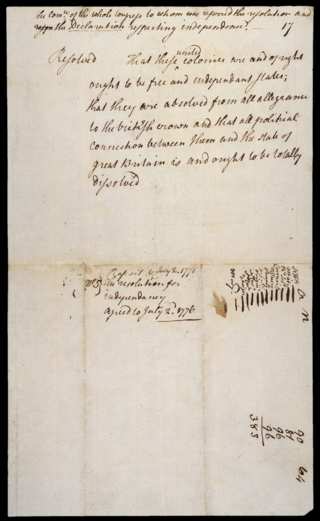 The com.ee of the whole Congress to whom was referred the resolution and
the Declaration respecting independence.
17
Resolved That these united colonies are and of right
ought to be free and independant states;
that they are absolved from all allegiance
to the british crown and that all political
connection between them and the state of
great Britain is and ought to be totally
dissolved
No 3
The resolution for
independancy
agreed to July 2.d 1776
90
81
96
96
383